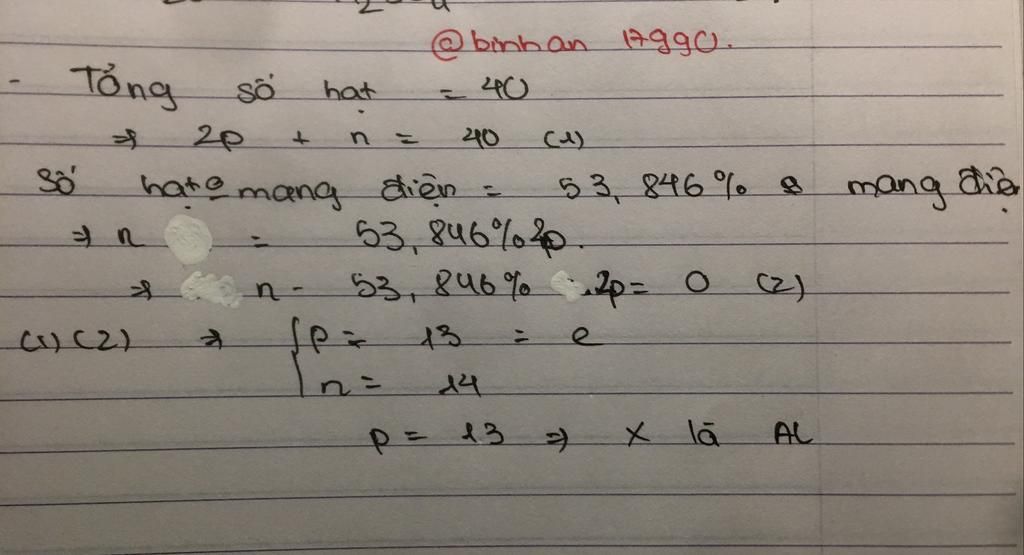 @binhan 17990.
- Tổng số hạt = 40
⇒ 2p + n = 40 (1)
Số hạt o mang điện = 53,846% s mang điệ
⇒ n = 53,846% 2p.
⇒ n - 53,846% .2p = 0 (2)
(1) (2) ⇒ { p = 13 = e
n = 14
p = 13 ⇒ X là AL